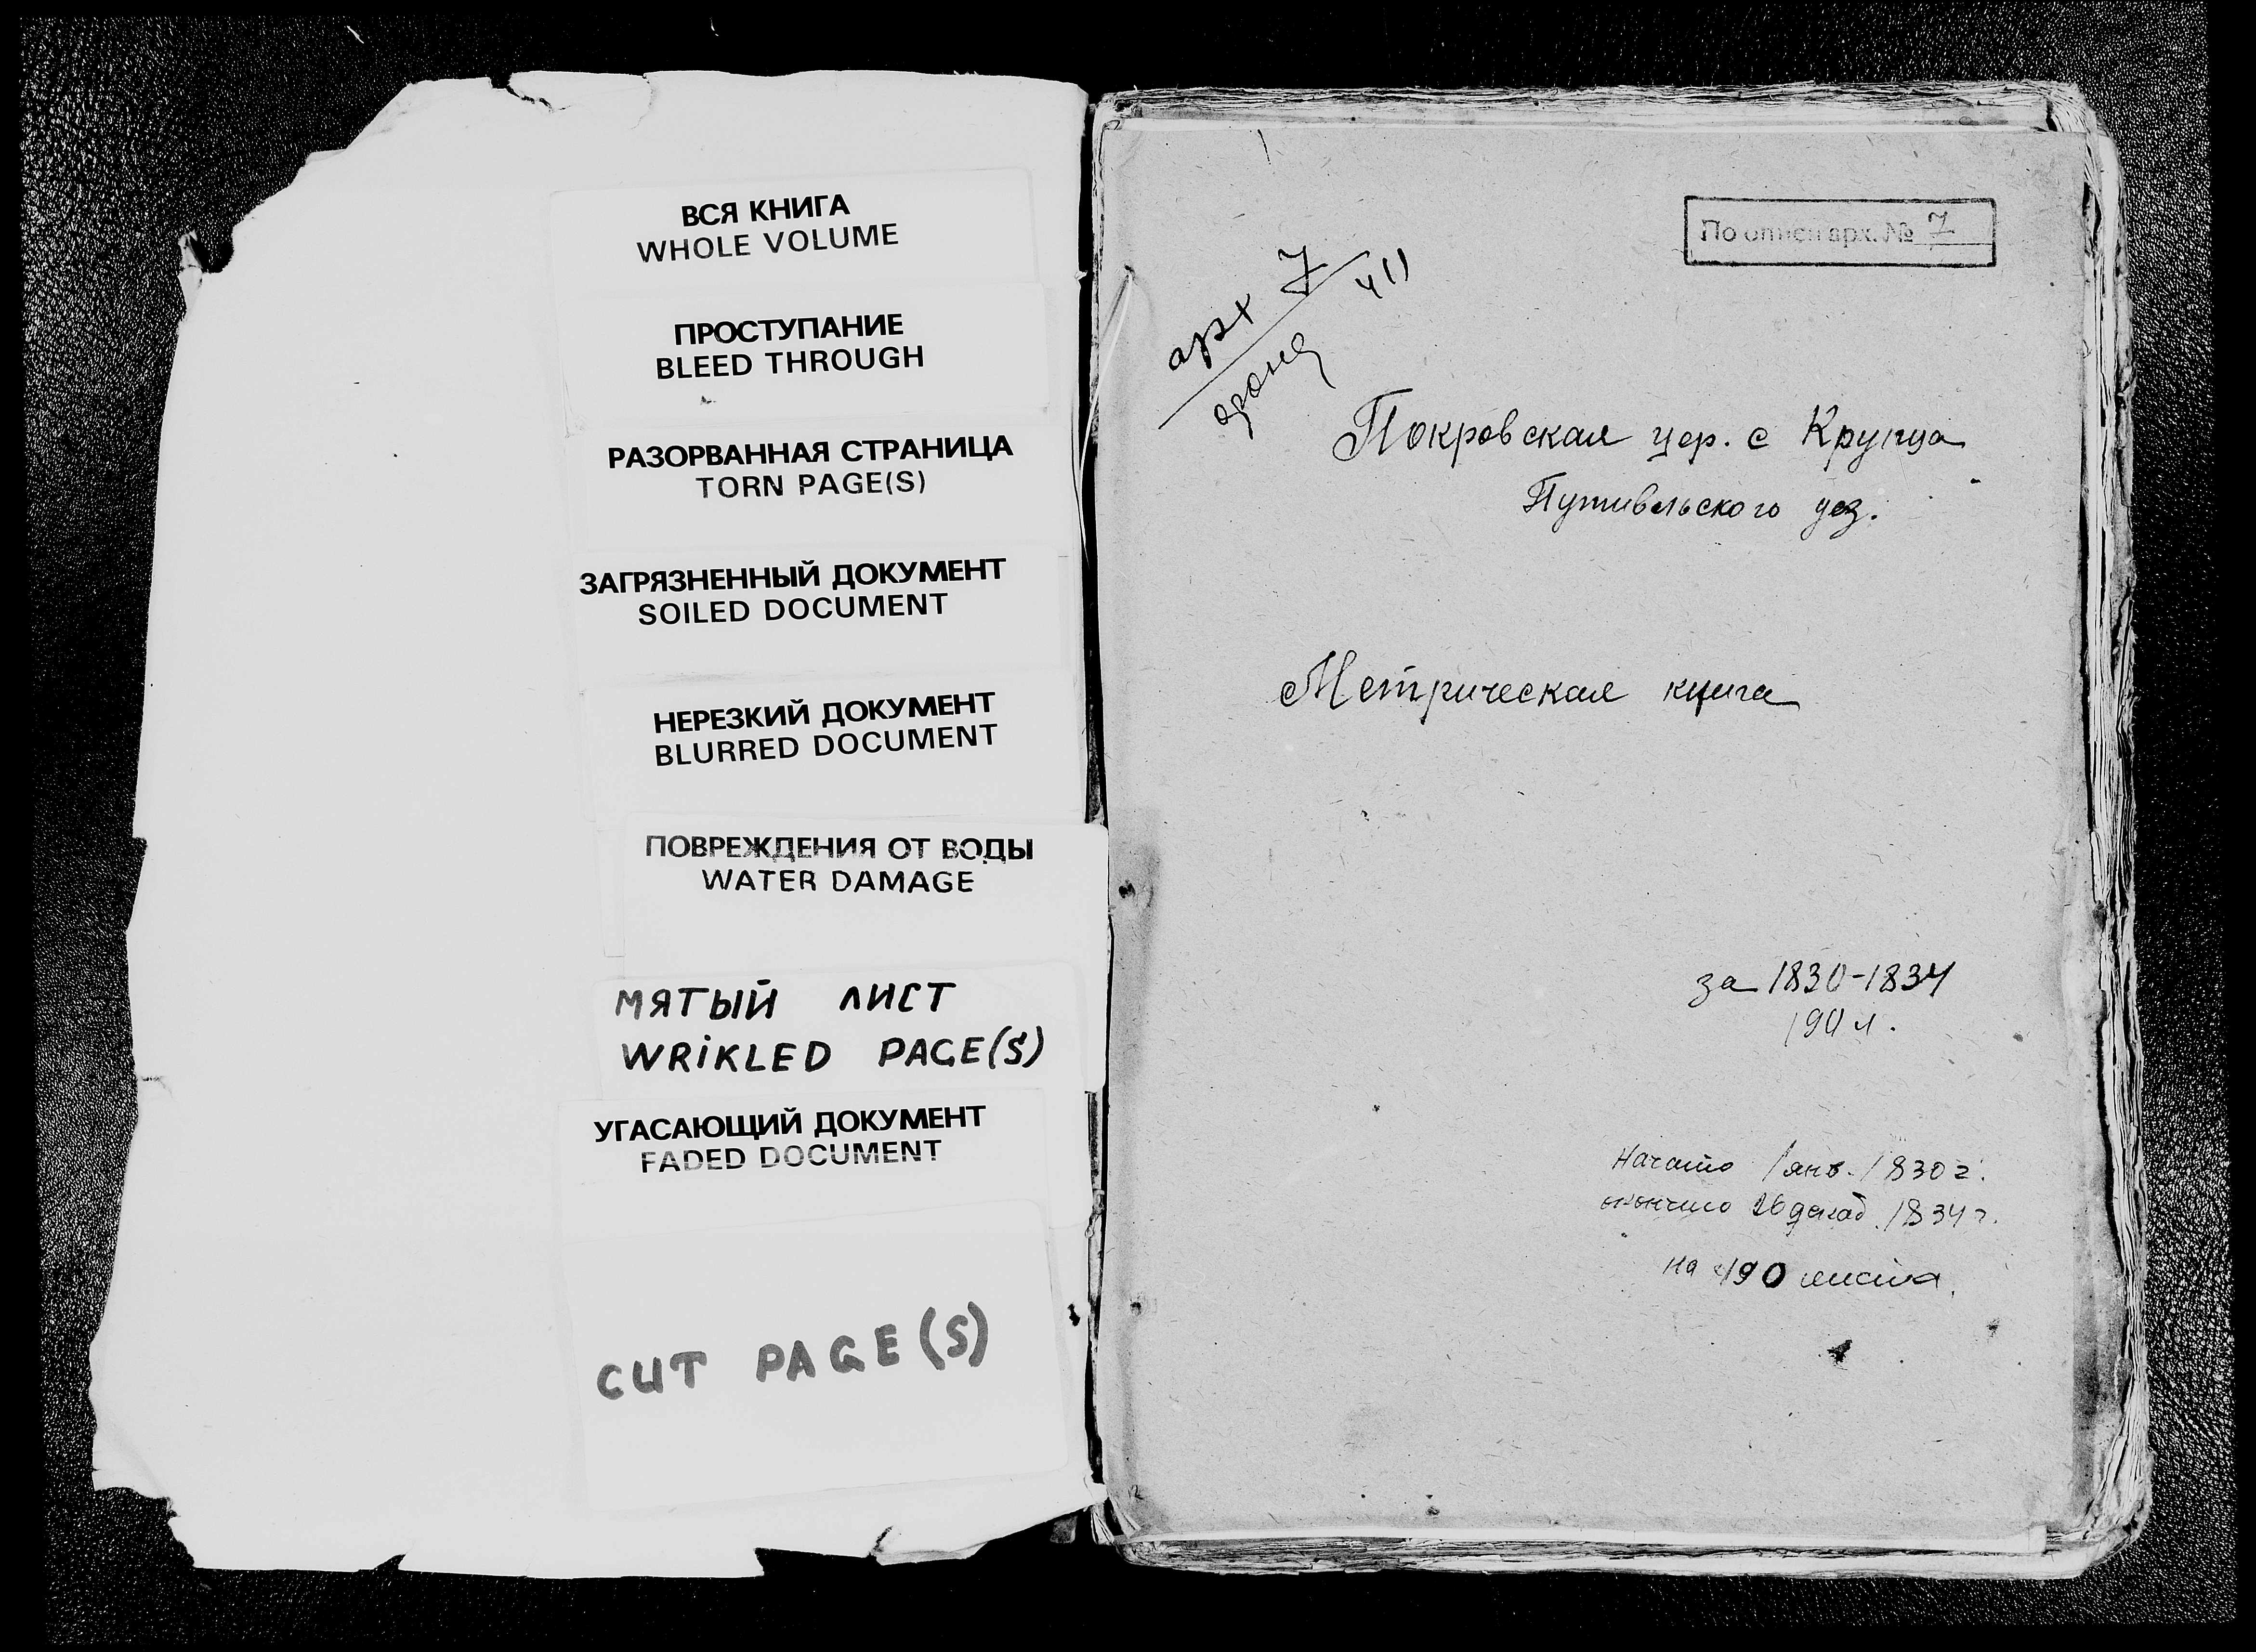 ВСЯ КНИГА
WHOLE VOLUME
ПРОСТУПАНИЕ
BLEED THROUGH
РАЗОРВАННАЯ СТРАНИЦА
TORN PAGE(S)
ЗАГРЯЗНЕННЫЙ ДОКУМЕНТ
SOILED DOCUMENT
НЕРЕЗКИЙ ДОКУМЕНТ
BLURRED DOCUMENT
ПОВРЕЖДЕНИЯ ОТ ВОДЫ
WATER DAMAGE
МЯТЫЙ ЛИСТ
WRIKLED PAGE(S)
УГАСАЮЩИЙ ДОКУМЕНТ
FADED DOCUMENT
CUT PAGE(S)
По описи арх. № 7
арх 7
фонд
Покровская цер. с Крупца
Путивльского уез.
Метрическая книга
за 1830-1834
190 л.
Начато 1 янв. 1830 г.
окончено 26 декаб. 1834 г.
на 190 листа